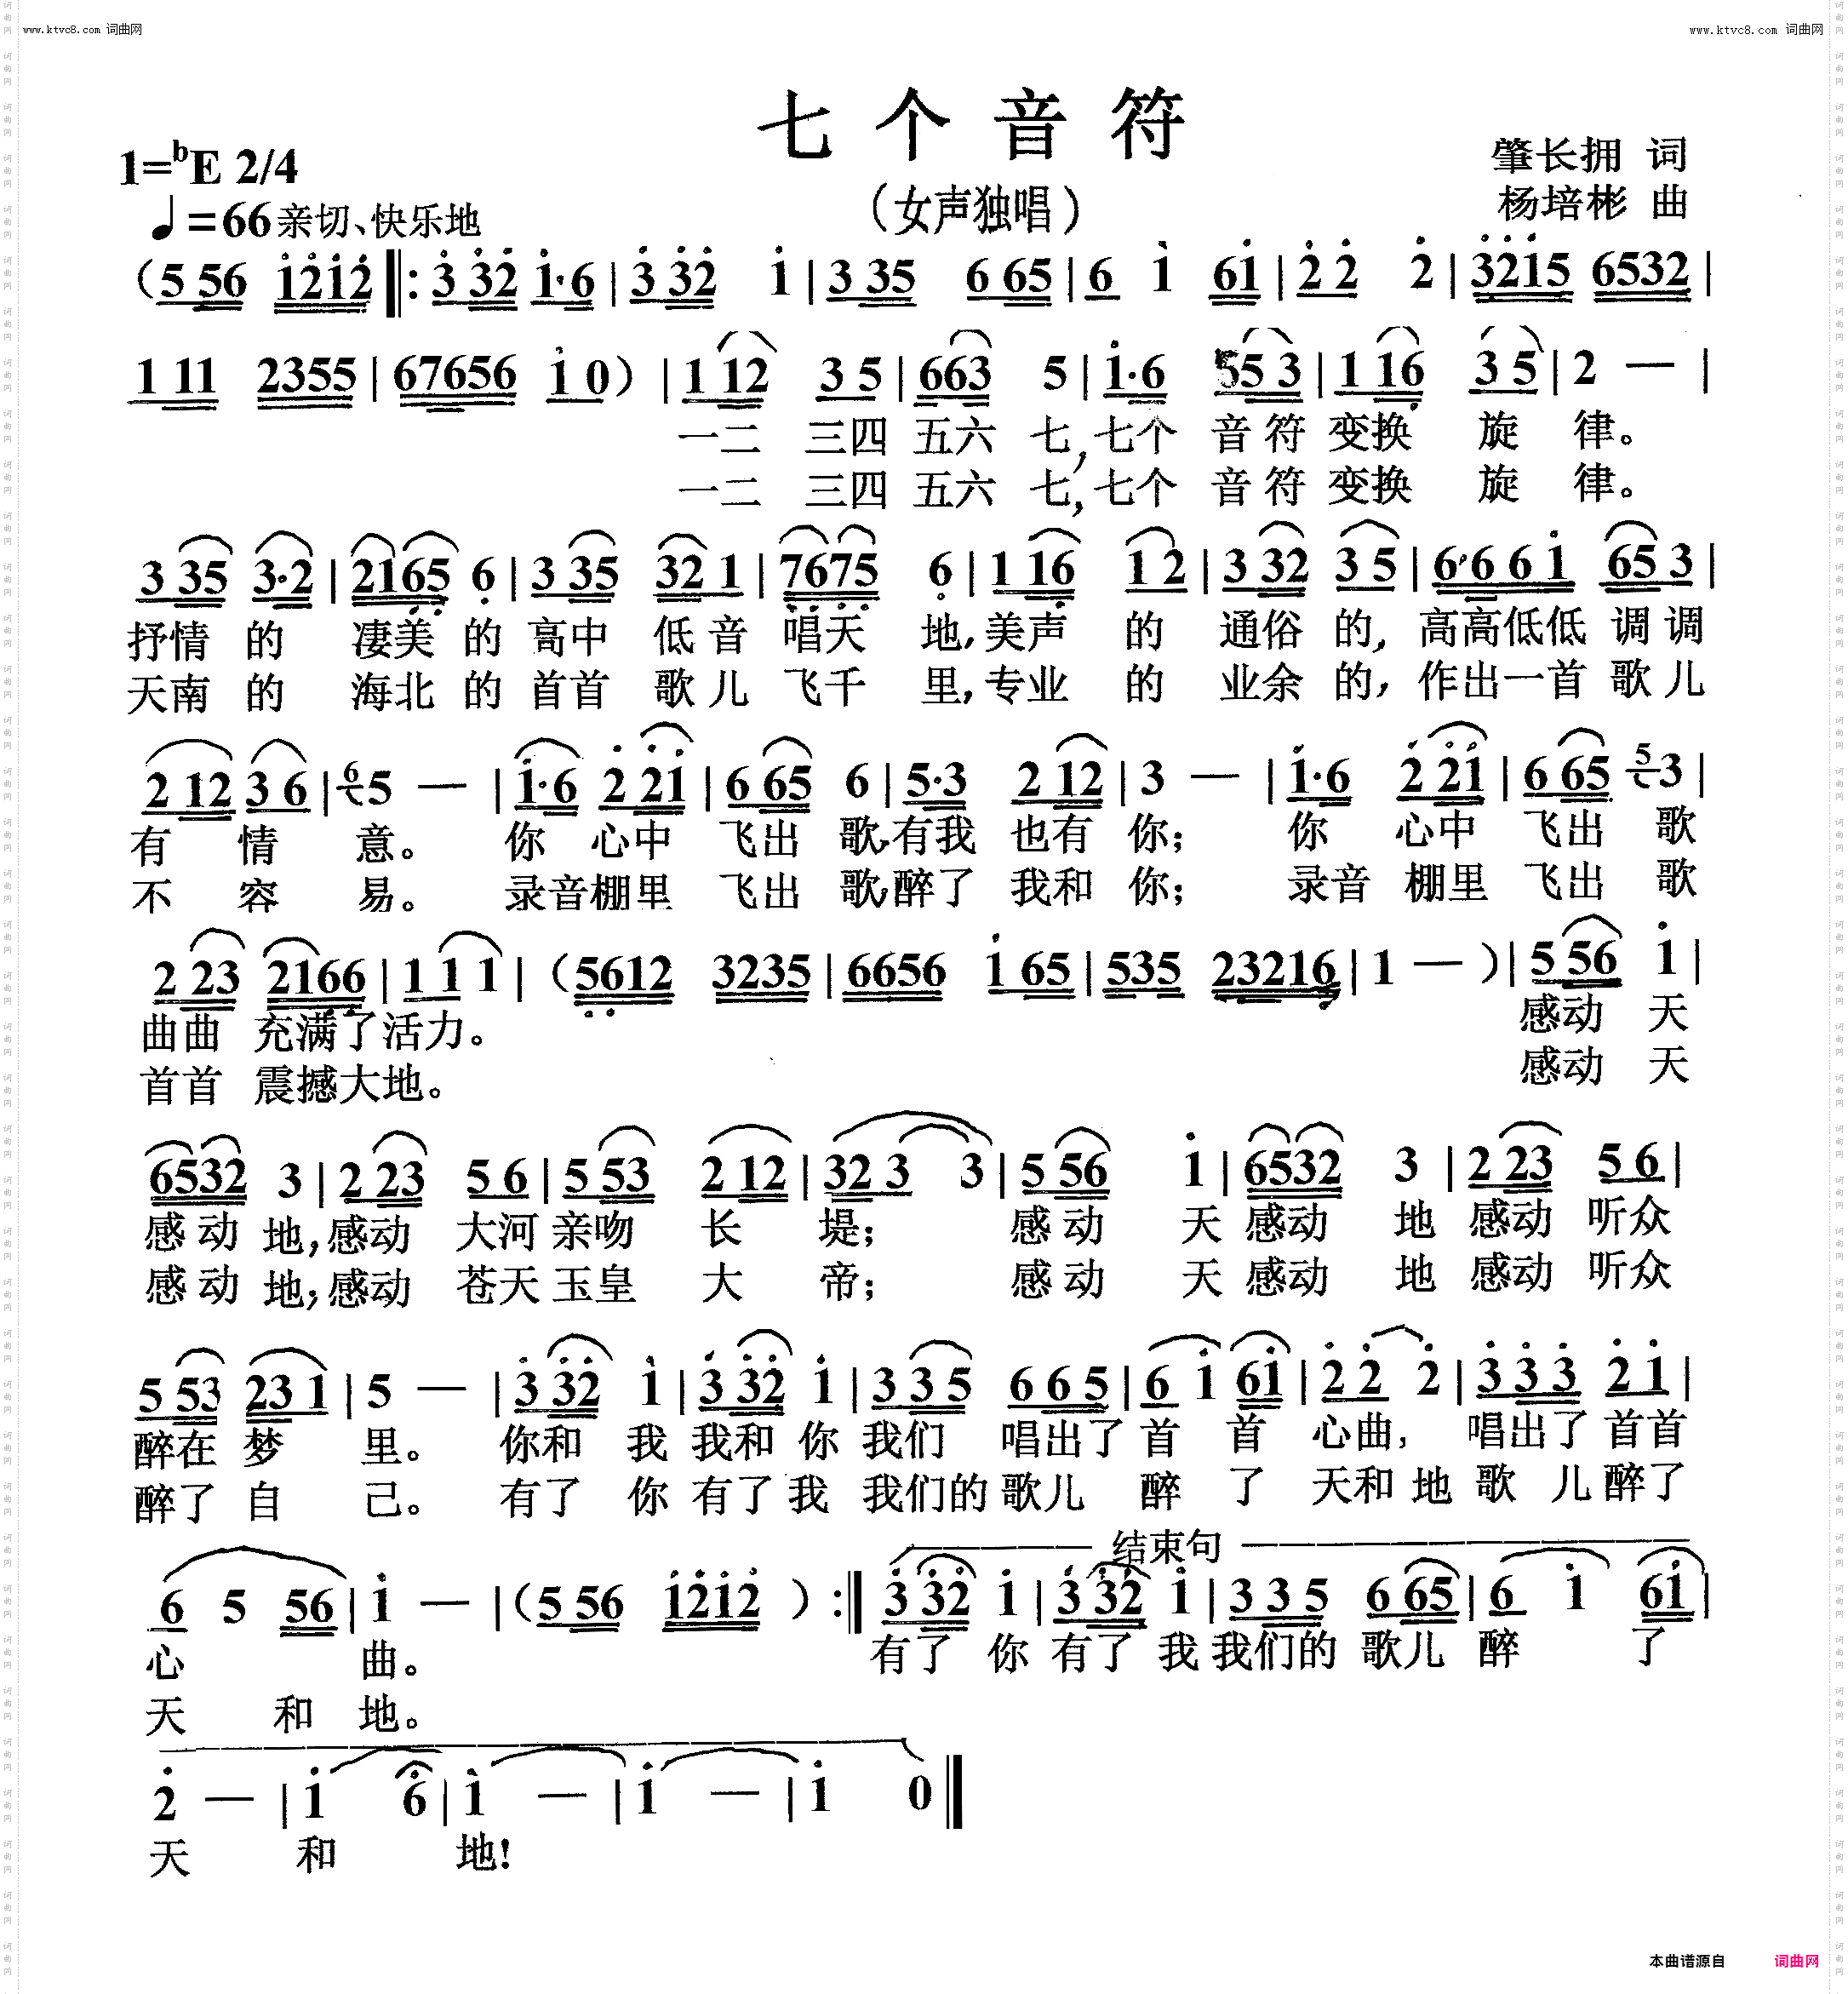 www.ktvc8.com 词曲网
www.ktvc8.com 词曲网
七个音符
1=bE 2/4
肇长拥 词
(女声独唱)
杨培彬 曲
♩=66 亲切、快乐地
(5 56 1212 ‖: 3 332 1·6 | 3 32 1 | 3 35 6 65 | 6 1 61 | 2 2 2 | 3215 6532 |
1 11 2355 | 67656 1 0) | 1 12 3 5 | 663 5 | 1·6 55 3 | 1 16 3 5 | 2 — |
一二 三四 五六 七,七个 音符 变换 旋 律。
一二 三四 五六 七,七个 音符 变换 旋 律。
3 35 3·2 | 2165 6 | 3 35 32 1 | 7675 6 | 1 16 1 2 | 3 32 3 5 | 6·6 6 1 65 3 |
抒情 的 凄美 的 高中 低音 唱天 地,美声 的 通俗 的,高高低低 调调
天南 的 海北 的 首首 歌儿 飞千 里,专业 的 业余 的,作出一首 歌儿
2 12 3 6 | 6 5 — | 1·6 2 21 | 6 65 6 | 5·3 2 12 | 3 — | 1·6 2 21 | 6 65 5 3 |
有 情 意。 你 心中 飞出 歌,有我 也有 你; 你 心中 飞出 歌
不 容 易。 录音棚里 飞出 歌,醉了 我和 你; 录音 棚里 飞出 歌
2 23 2166 | 1 1 1 | (5612 3235 | 6656 1 65 | 535 23216 | 1 — ) | 5 56 1 |
曲曲 充满了活力。 感动 天
首首 震撼大地。 感动 天
6532 3 | 2 23 5 6 | 5 53 2 12 | 32 3 3 | 5 56 1 | 6532 3 | 2 23 5 6 |
感动 地,感动 大河 亲吻 长 堤; 感动 天 感动 地 感动 听众
感动 地;感动 苍天 玉皇 大 帝; 感动 天 感动 地 感动 听众
5 53 23 1 | 5 — | 3 32 1 | 3 32 1 | 3 3 5 6 6 5 | 6 1 61 | 2 2 2 | 3 3 3 2 1 |
醉在 梦 里。 你和 我 我和 你 我们 唱出了 首 首 心曲, 唱出了 首首
醉了 自 己。 有了 你 有了 我 我们的 歌儿 醉 了 天和 地 歌 儿 醉了
结束句
6 5 56 | 1 — | (5 56 1212 ) :‖ 3 32 1 | 3 32 1 | 3 3 5 6 65 | 6 1 61 |
心 曲。 有了 你 有了 我 我们的 歌儿 醉 了
天 和 地。
2 — | 1 6 | 1 — | 1 — | 1 0 ‖
天 和 地!
本曲谱源自 词曲网